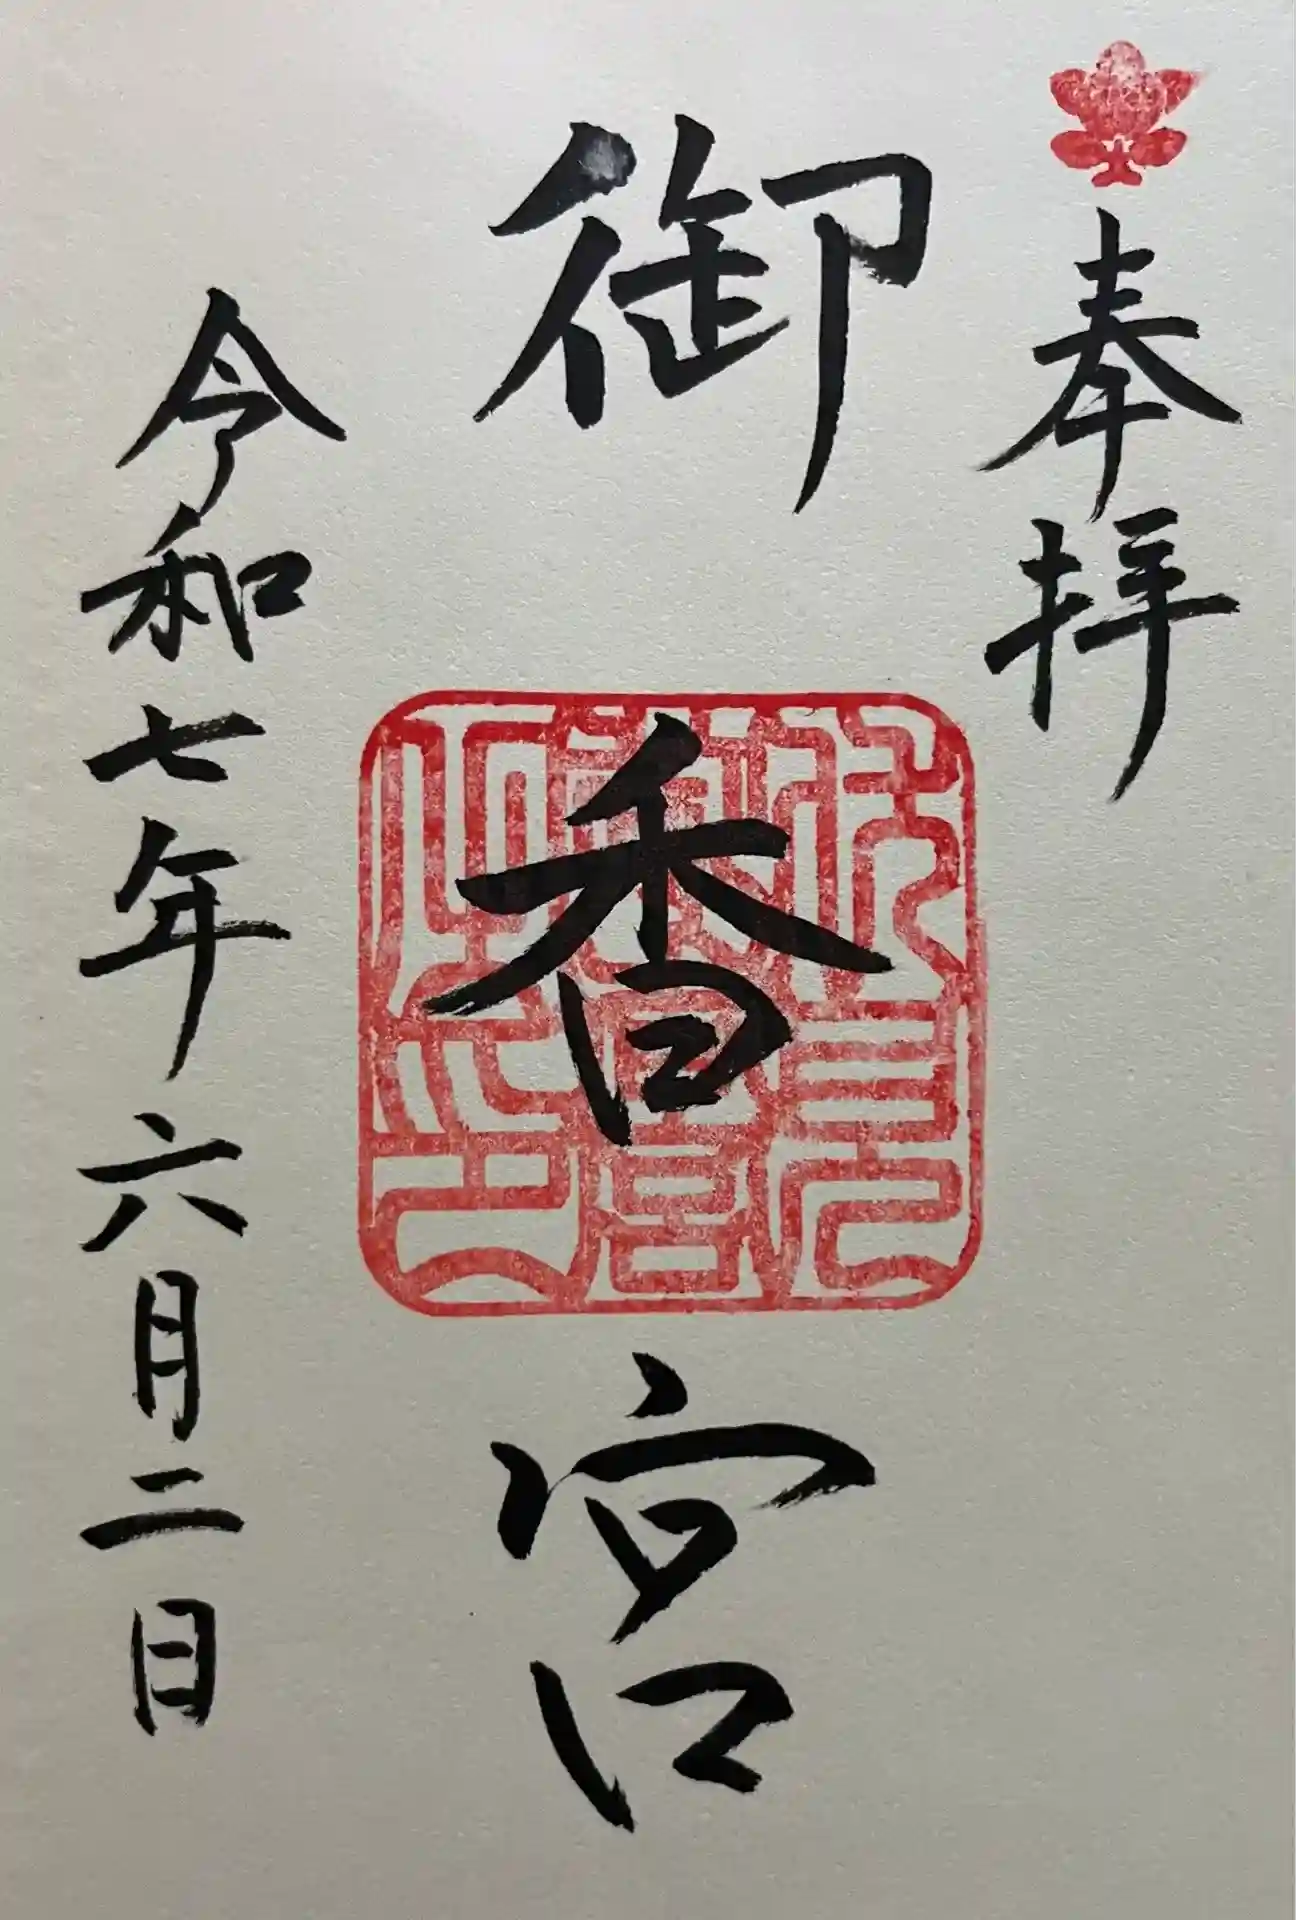 奉拝
御香宮
令和七年六月二日